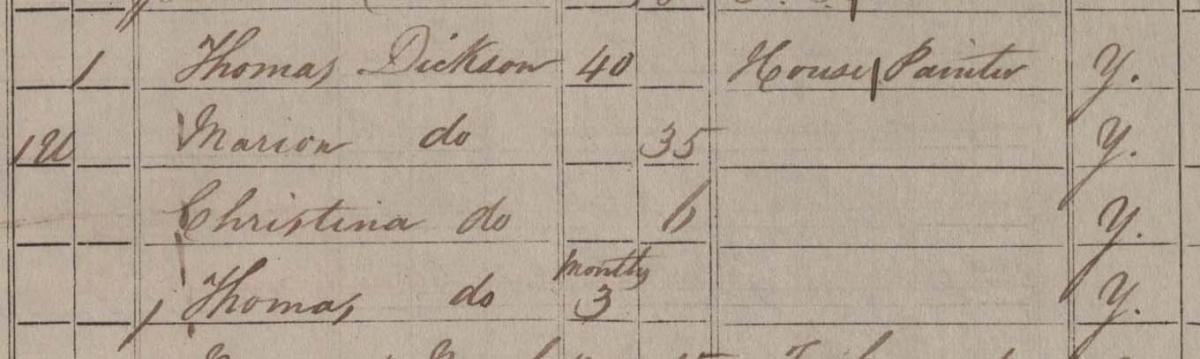 1 Thomas Dickson 40 House Painter Y.
1U Marion do 35 Y.
Christina do 6 Y.
Months
Thomas do 3 Y.